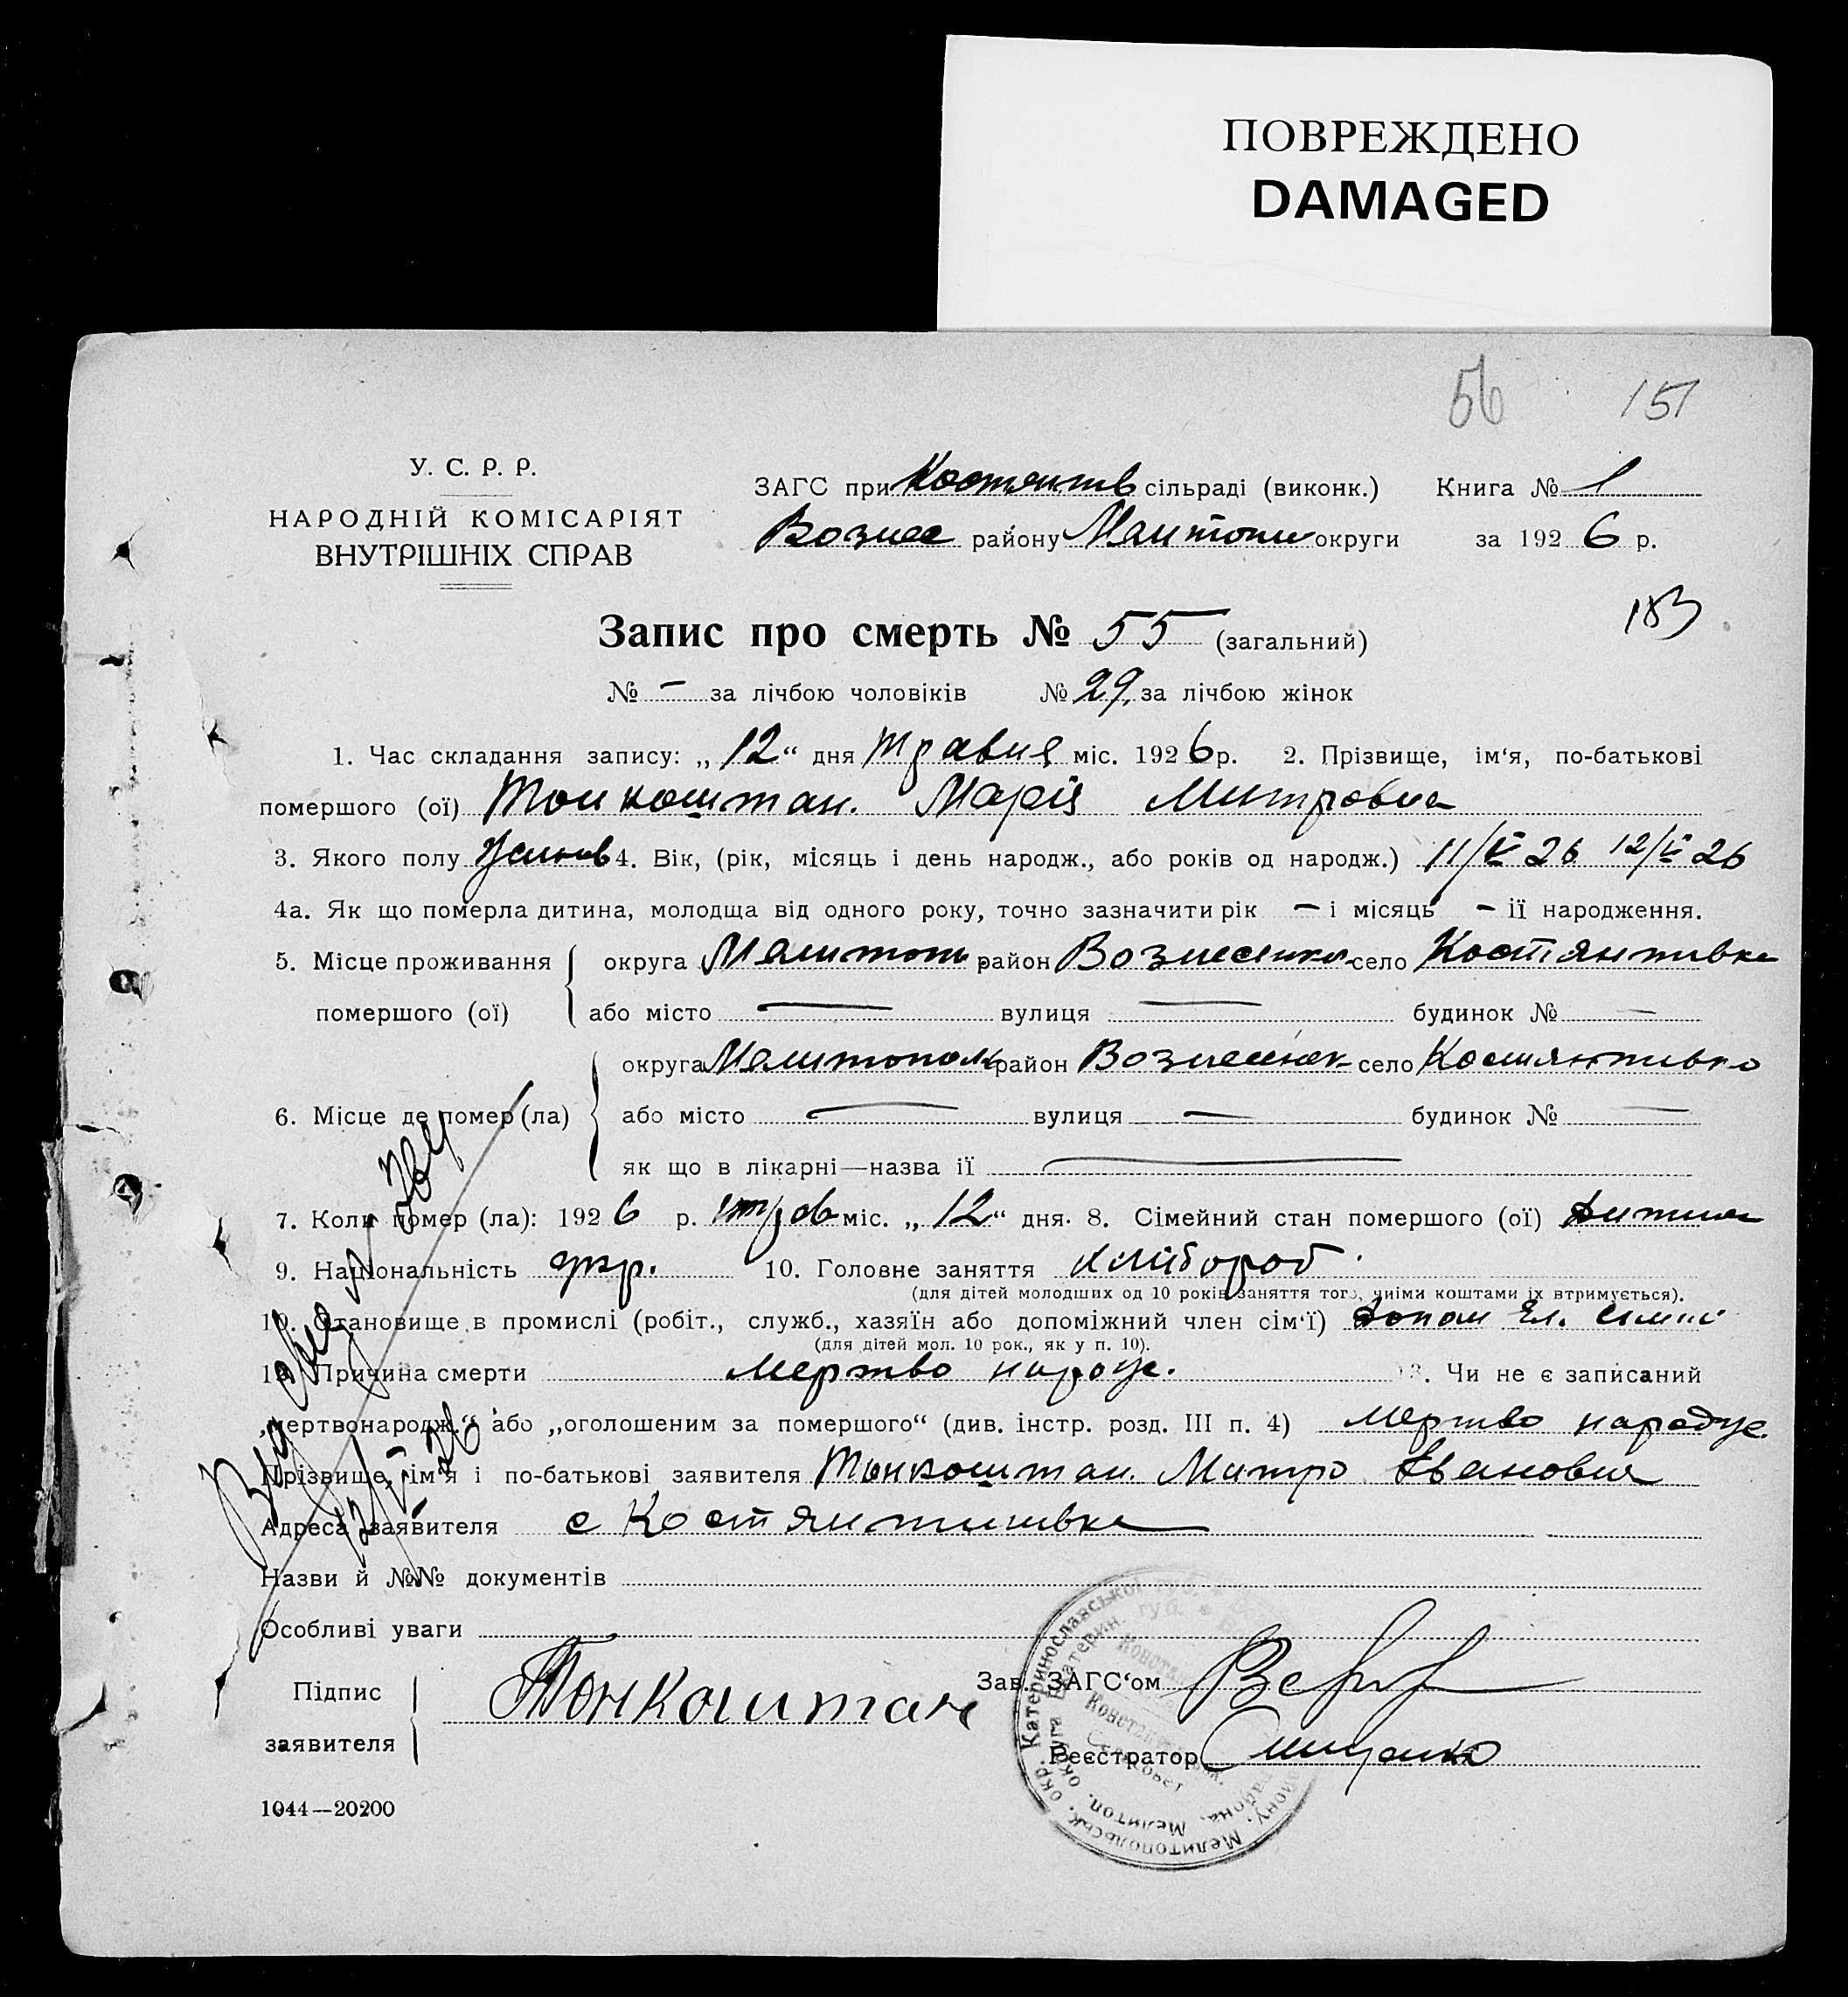 ПОВРЕЖДЕНО
DAMAGED
56 151
У. С. Р. Р.
НАРОДНІЙ КОМІСАРІЯТ
ВНУТРІШНІХ СПРАВ
ЗАГС при Костянтів сільраді (виконк.) Книга № 1
Вознес району Мелитопи округи за 1926 р.
183
Запис про смерть № 55 (загальний)
№ – за лічбою чоловіків № 29. за лічбою жінок
1. Час складання запису: „12“ дня травня міс. 1926 р. 2. Прізвище, ім‘я, по-батькові
помершого (ої) Тонкоштан. Марія Митровна
3. Якого полу 4. Вік, (рік, місяць і день народж., або років од народж.) 11/V 26 12/V 26
4а. Як що померла дитина, молодща від одного року, точно зазначити рік – і місяць – ії народження.
5. Місце проживання помершого (ої)
округа Мелитоп район село Костянтивка
або місто — вулиця — будинок № —
6. Місце де помер (ла)
округа Мелитополь район Вознесенск село Костянтивка
або місто — вулиця — будинок № —
як що в лікарні—назва ії —
7. Коли помер (ла): 1926 р. міс. „12“ дня. 8. Сімейний стан помершого (ої) дитина
9. Національність укр. 10. Головне заняття хлібороб
(для дітей молодших од 10 років заняття того, чиїми коштами їх втримується).
Становище в промислі (робіт., служб., хазяїн або допоміжний член сім‘ї) допом
(для дітей мол. 10 рок., як у п. 10).
Причина смерти Мертво народж. 13. Чи не є записаний
„мертвонародж.“ або „оголошеним за помершого“ (див. інстр. розд. III п. 4) Мертво народж.
Прізвище, ім‘я і по-батькові заявителя Тонкоштан. Митро Іванович
Адреса заявителя с
Назви й №№ документів
Особливі уваги
Підпис заявителя Тонкоштан
Зав. ЗАГС‘ом
Реєстратор
1044—20200